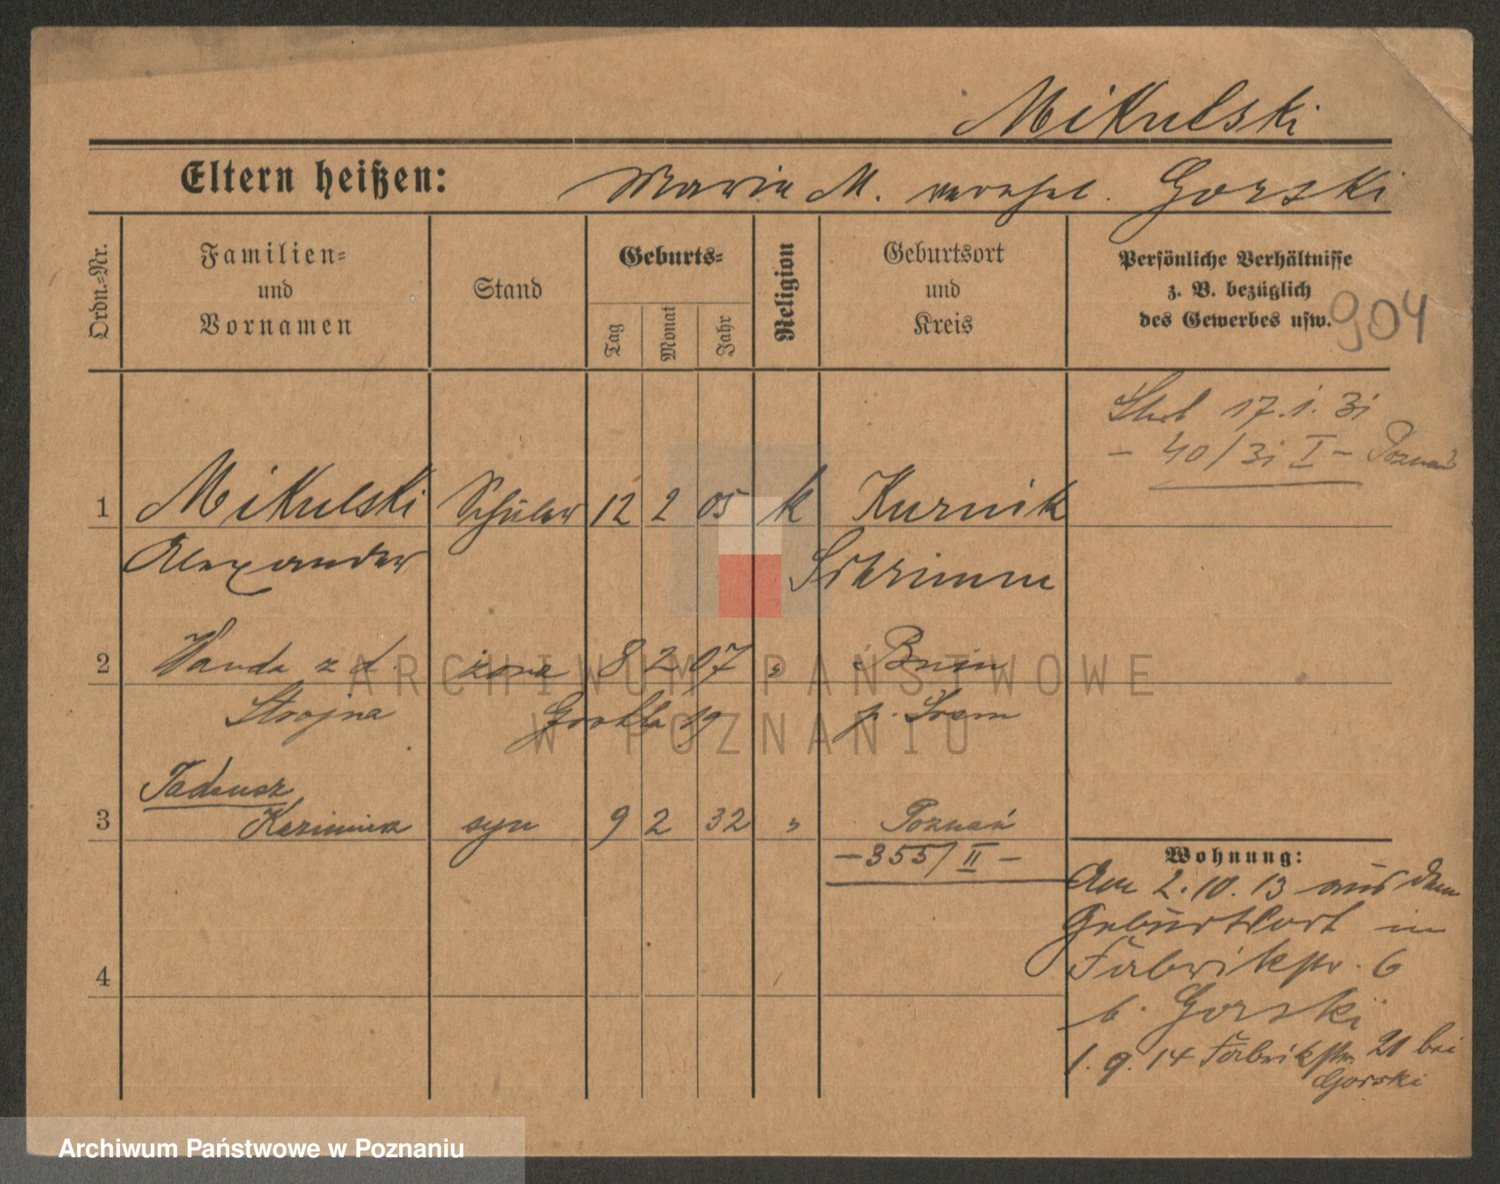 Mikulski
Eltern heißen: Maria M. verehel. Gorski
Ordn.-Nr.
Familien-
und
Vornamen
Stand
Geburts-
Tag
Monat
Jahr
Religion
Geburtsort
und
Kreis
Persönliche Verhältnisse
z. B. bezüglich
des Gewerbes usw.
904
Ślub 17.1.31
- 40/31 I - Poznań
1 Mikulski Schüler 12 2 05 k Kurnik
Alexander Schrimm
2 Wanda z d. żona 8 2 07 " Bnin
Strojna Grobla 19 p. Śrem
Tadeusz
3 Kazimierz syn 9 2 32 " Poznań
- 355/II -
4
Wohnung:
Am 2.10.13 aus dem
Geburtsort in
Fabrikstr. 6
b. Gorski
1.9.14 Fabrikstr. 20 bei
Gorski
ARCHIWUM PAŃSTWOWE
W POZNANIU
Archiwum Państwowe w Poznaniu